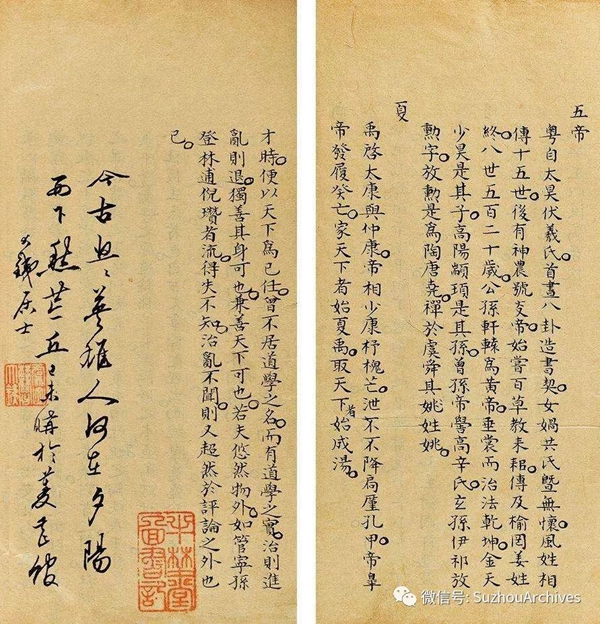 五帝
粤自太昊伏羲氏首畫八卦造書契女媧共氏暨無懷風姓相
傳十五世後有神農號炎帝始嘗百草教耒耜傳及榆罔姜姓
終八世五百二十歲公孫軒轅為黃帝垂裳而治法乾坤金天
少昊是其子高陽顓頊是其孫曾孫帝嚳高辛氏玄孫伊祁放
勲字放勲是為陶唐堯禪於虞舜其姚姓姚
夏
禹啓太康與仲康帝相少康杼槐芒泄不不降扃厪孔甲帝皐
帝發履癸亡家天下者始夏禹取天下者始成湯
才時便以天下為己任曾不居道學之名而有道學之實治則進
亂則退獨善其身可也兼善天下可也若夫悠然物外如管寧孫
登林逋倪瓚者流得失不知治亂不聞則又超然於評論之外也
已
今古興英雄人何在夕陽
西下
居士
平林堂
書記
微信号: SuzhouArchives